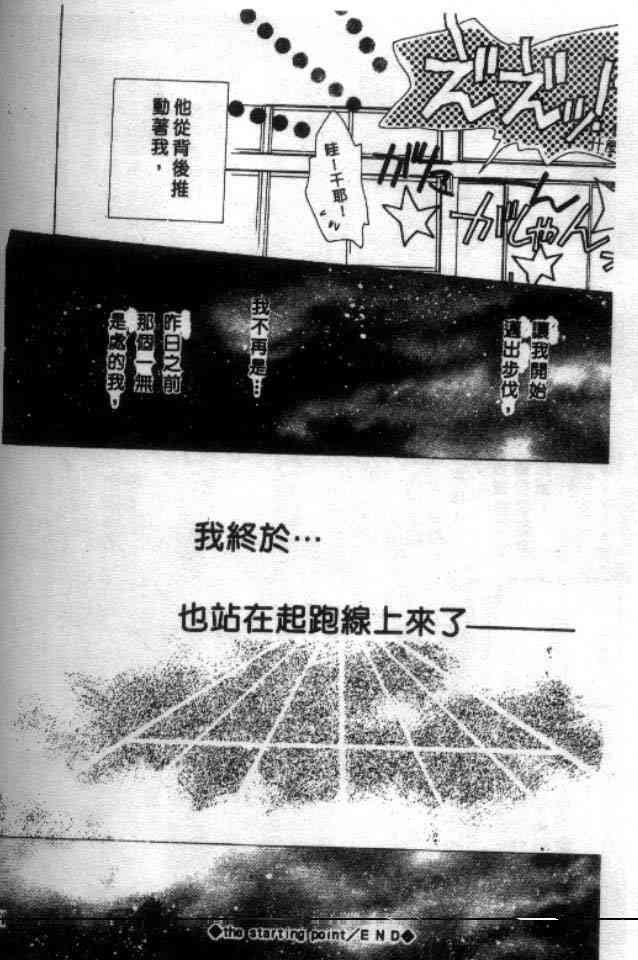 ずずッ!
什麼
ガガ
がしゃん
哇ー千耶!
他從背後推
動著我，
讓我開始
邁出步伐，
我不再是…
昨日之前
那個一無
是處的我，
我終於…
也站在起跑線上來了——
◆the starting point/END◆